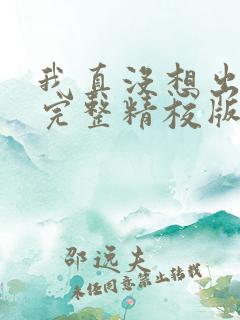 我真没想出
完整精校版
邵远夫
未经同意禁止转载